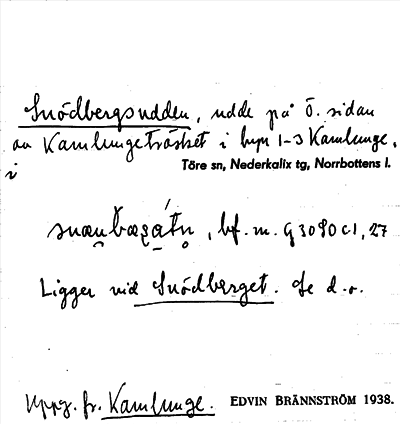 Snödbergsudden, udde på Ö. sidan
av Kamlungeträsket i byn 1-3 Kamlunge,
i Töre sn, Nederkalix tg, Norrbottens l.
bf. m. G 3090 c 1, 27
Ligger vid Snödberget. Se d.o.
Uppg. fr. Kamlunge. EDVIN BRÄNNSTRÖM 1938.